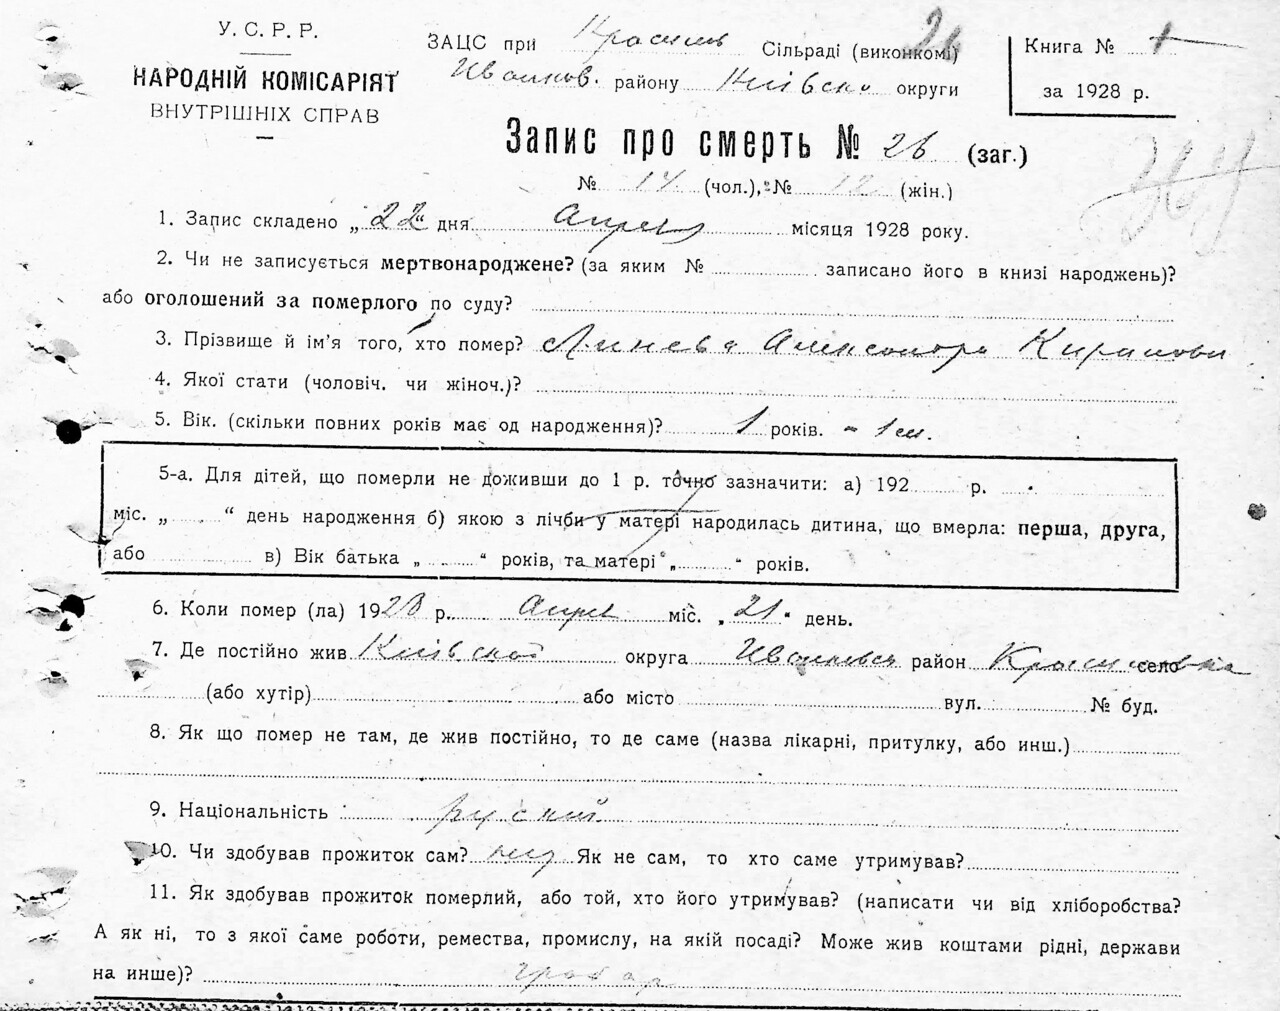 У. С. Р. Р.
НАРОДНІЙ КОМІСАРІЯТ
ВНУТРІШНІХ СПРАВ
ЗАЦС при Красилів Сільраді (виконкомі)
Иванков. району Київско округи
Книга № 1
за 1928 р.
Запис про смерть № 26 (заг.)
№ 14 (чол.), № 12 (жін.)
1. Запис складено „22“ дня Апреля місяця 1928 року.
2. Чи не записується мертвонароджене? (за яким № записано його в книзі народжень)?
або оголошений за померлого по суду?
3. Прізвище й ім’я того, хто помер? Линева Александра
4. Якої стати (чоловіч. чи жіноч.)?
5. Вік. (скільки повних років має од народження)? 1 років. - 1 м.
5-а. Для дітей, що померли не доживши до 1 р. точно зазначити: а) 192 р.
міс. „ “ день народження б) якою з лічби у матері народилась дитина, що вмерла: перша, друга,
або в) Вік батька „ “ років, та матері „ “ років.
6. Коли помер (ла) 1928 р. Апреля міс. „21“ день.
7. Де постійно жив Київской округа Иванковск район Красиловка село
(або хутір) або місто вул. № буд.
8. Як що помер не там, де жив постійно, то де саме (назва лікарні, притулку, або инш.)
9. Національність руский
10. Чи здобував прожиток сам? Як не сам, то хто саме утримував?
11. Як здобував прожиток померлий, або той, хто його утримував? (написати чи від хліборобства?
А як ні, то з якої саме роботи, ремества, промислу, на якій посаді? Може жив коштами рідні, держави
на инше)?